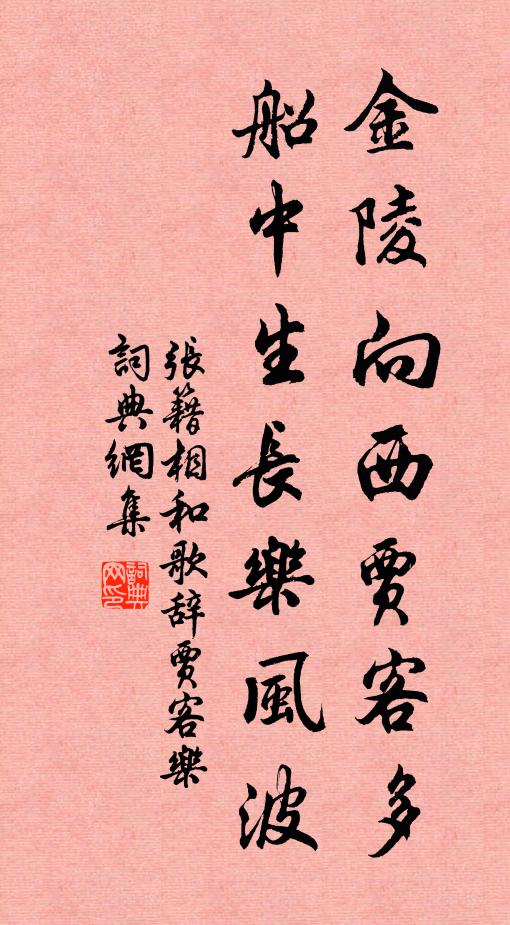 金陵向西賈客多
船中生長樂風波
張籍相和歌辞賈客樂
詞典網集
詞典网印